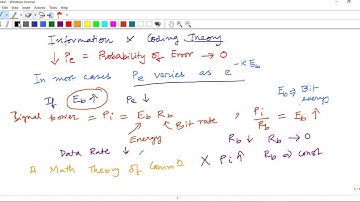 Information & Coding Theory
↓ Pe = Probability of Error → 0
In most cases Pe varies as e^-kEb
If Eb ↑ Pe ↓ Eb ⇒ Bit energy
Signal power = Pi = Eb Rb , Pi/Rb = Eb
Energy Bit rate Rb ↓ Rb → 0
Data Rate ↓ X Pi ↑ Rb ⇒ const
A Math Theory of Commn